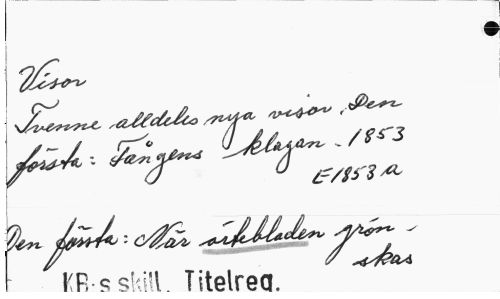 Visor
Tvenne alldeles nya visor. Den
första: Fångens klagan. 1853
E1853a
Den första: När örtebladen grön-
skas
KB:s skill. Titelreg.